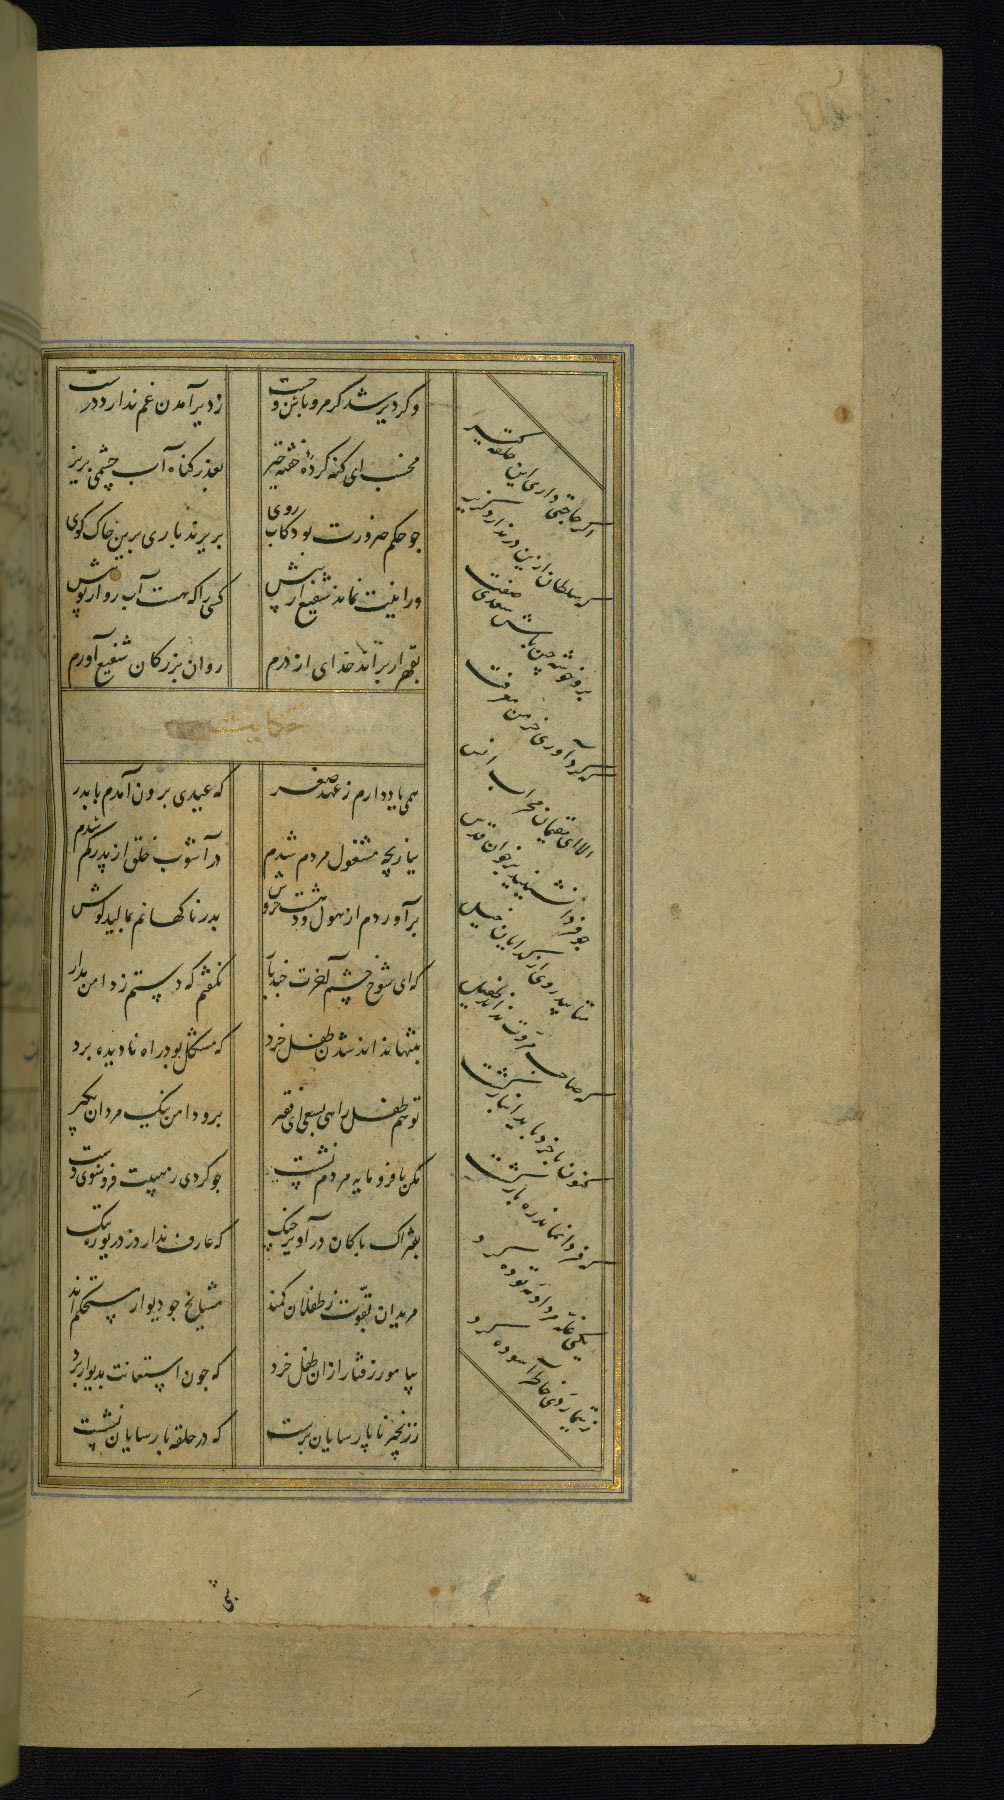 وکر دیر شد کرم رو باش و جست ز دیر آمدن غم ندارد درست
مخسب ای کنه کردهٔ خفته خیز بعذر کناه آب چشمی بریز
جو حکم ضرورت بود کاب روی بریزند باری برین خاک کوی
ور ابیت نماند شفیع آر پیش کسی را که هست آب رو از تو بیش
بقهر ار براند خدای از درم روان بزرکان شفیع آورم
حکایت
همی یاد دارم ز عهد صغر که عیدی برون آمدم با پدر
ببازیچه مشغول مردم شدم در آشوب خلق از پدر کم شدم
برآوردم از هول و دهشت خروش پدر ناکهانم بمالید کوش
که ای شوخ چشم آخرت چند بار نکفتم که دستم ز دامن مدار
بتنها نداند شدن طفل خرد که مشکل بود راه نادیده برد
تو هم طفل راهی بسعی ای فقیر برو دامن نیک مردان بکیر
مکن با فرومایه مردم نشست جو کردی ز هیبت فروشوی دست
بفتراک پاکان درآویز چنک که عارف ندارد ز دریوزه ننک
مریدان بقوّت ز طفلان کمند مشایخ جو دیوار مستحکم اند
بیاموز رفتار ازان طفل خرد که جون استعانت بدیوار برد
ز زنجیر ناپارسایان برست که در حلقه پارسایان نشست
اکر حاجتی داری این حلقه کیر
که سلطان ازین در ندارد کزیر
برو خوشه چین باش سعدی صفت
که کرد آوری خرمن معرفت
الا ای مقیمان محراب انس
جو فردا نشینید بر خوان قدس
متابید روی از کدایان خیل
که صاحب مروّت نداند طفیل
کنون با خرد باید انباز کشت
که فردا نماند ره باز کشت
یکی غلّه مرداد مه توده کرد
ز تیمار وی خاطر آسوده کرد
شبی